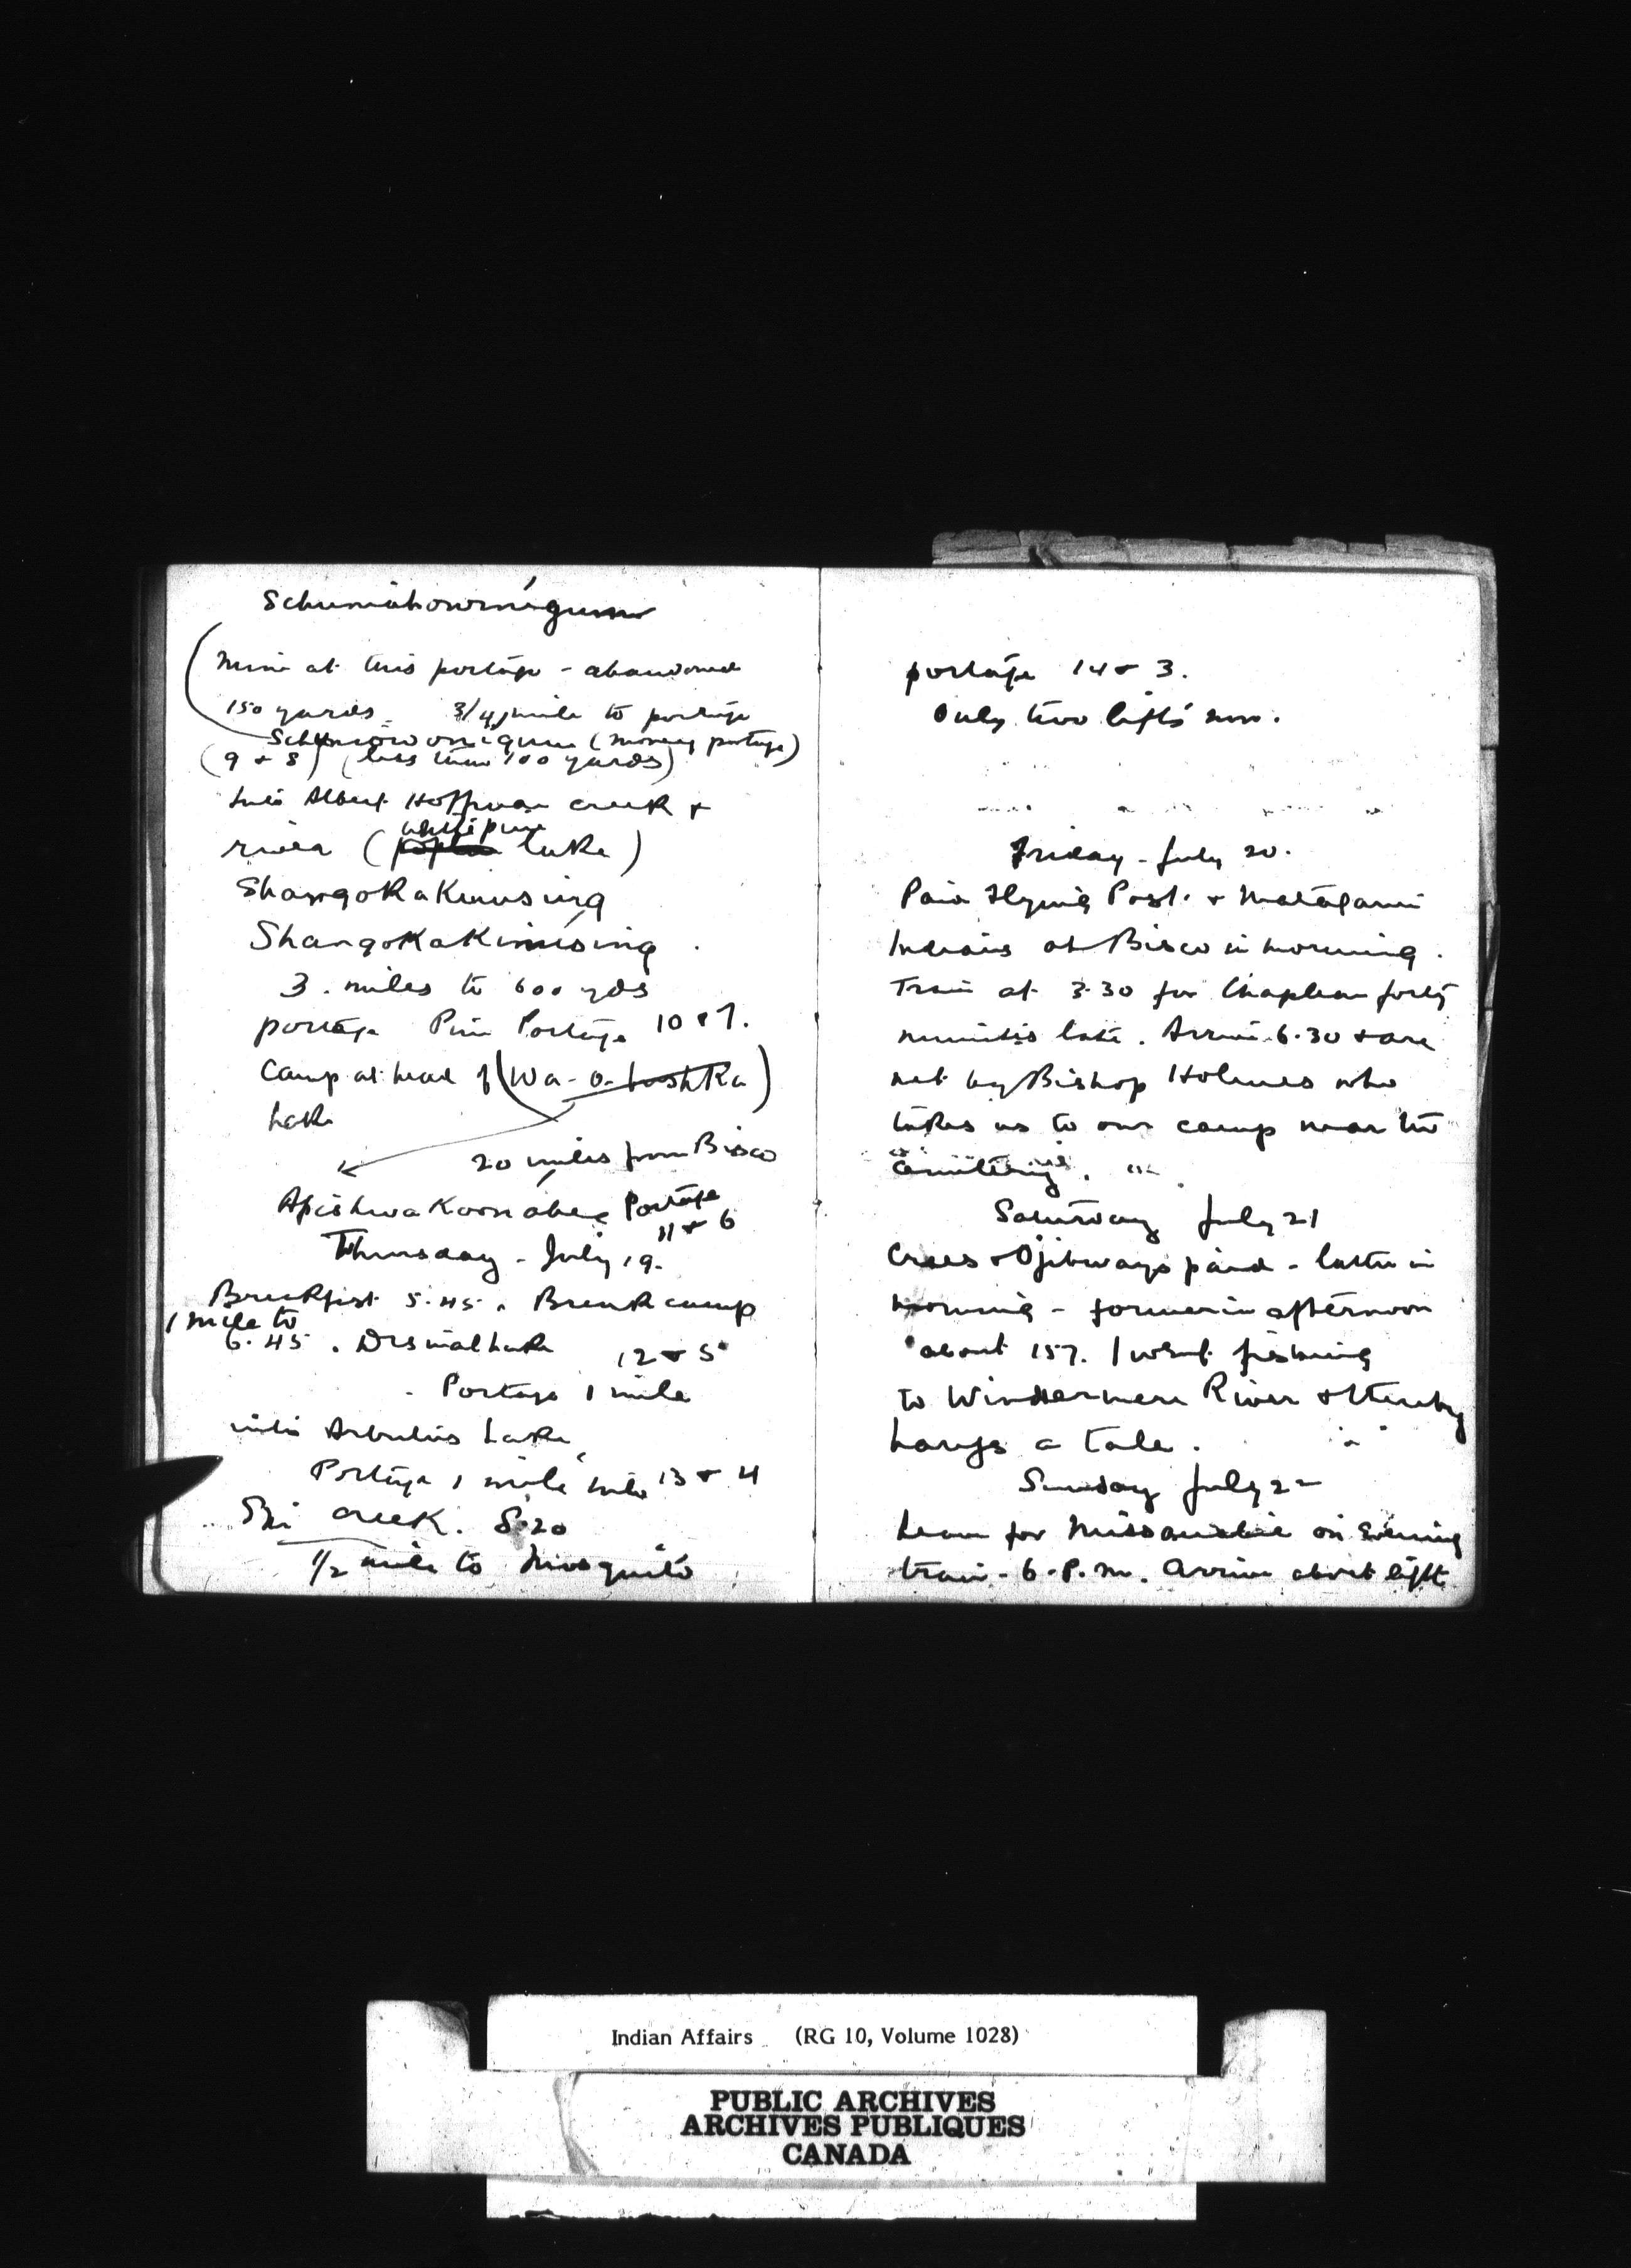 Schuniahowinigum
Mine at this portage - abandoned
150 yards - 3/4 mile to portage
Schuniowonigum (money portage)
(9 & 8) (less than 100 yards)
Into Albert Hoffman creek &
river (white pine lake)
Shangokakimusing
Shangokakimising
3. miles to 600 yds
portage Pine Portage 10 & 7.
Camp at head of (Wa-o-
Lake
20 miles from Bisco
Portage
11 & 6
Thursday - July 19.
Breakfast 5.45. Break camp
1 mile to
6.45. Dismal Lake 12 & 5
- Portage 1 mile
into Arbutus Lake
Portage 1 mile into 13 & 4
creek. 8.20
1/2 mile to Mosquito
portage 14 & 3.
Only two lifts now.
Friday - July 20.
Paid Flying Post. & Matagami
Indians at Bisco in morning.
Train at 3.30 for Chapleau forty
minutes late. Arrive 6.30 & are
met by Bishop Holmes who
takes us to our camp near the
Cemetery.
Saturday July 21
Crees & Ojibways paid - latter in
morning - former in afternoon
about 157. I went fishing
to Windermere River & thereby
hangs a tale.
Sunday July 22
Leave for Missanabie on evening
train - 6.P.M. Arrive about eight
Indian Affairs (RG 10, Volume 1028)
PUBLIC ARCHIVES
ARCHIVES PUBLIQUES
CANADA